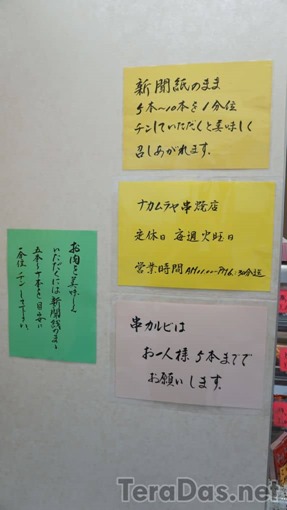 新聞紙のまま
5本〜10本を1分位
チンしていただくと美味しく
召しあがれます。
ナカムラヤ串焼店
定休日 毎週火曜日
営業時間 AM11:00〜PM6:30分迄
串カルビは
お一人様5本まで
お願いします。
お肉を美味しく
いただくには新聞紙のまゝ
五本〜十本を目安に
一分位チンして下さい。
TeraDas.net